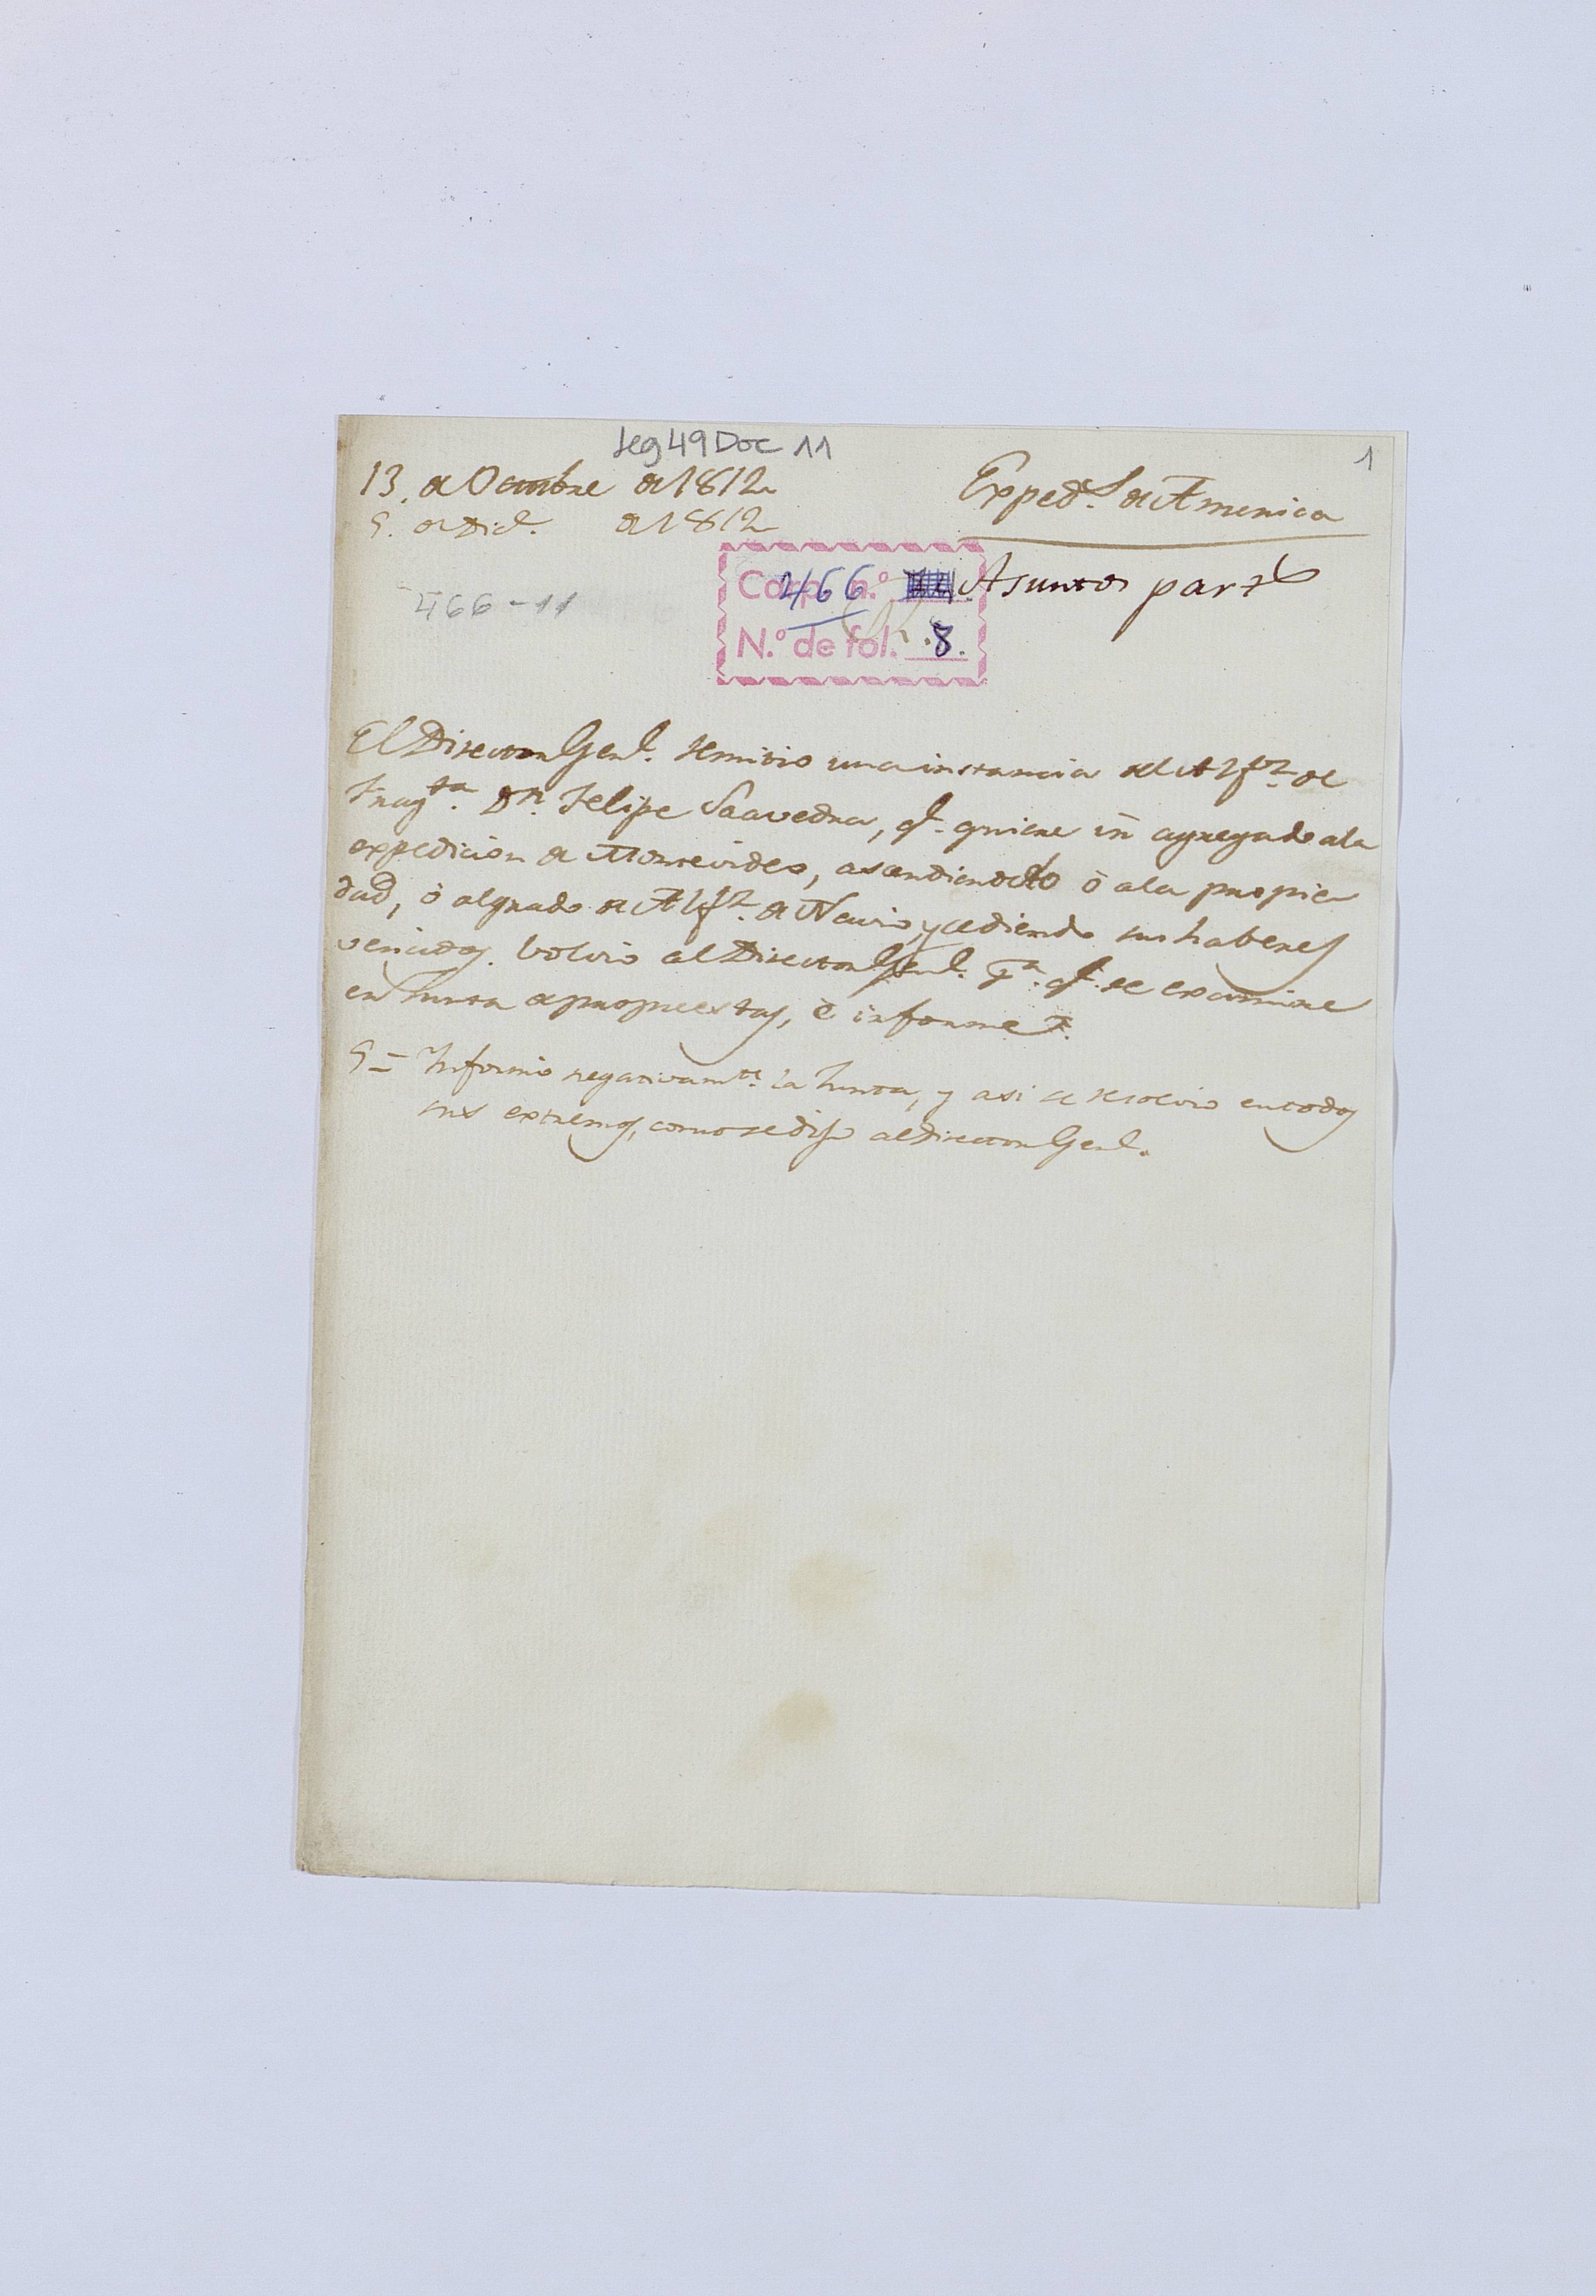 Leg 49 Doc 11
1
13. de Octubre de 1812
9. de Dic.e de 1812
Exped.s de America
466-11
Carp. n.º 466
Asuntos part.s
N.º de fol. 8.
El Director Gen.l remitio una instancia del Alf.z de
Frag.ta D.n Felipe Saavedra, q.e quiere ir agregado a la
expedicion de Montevideo, ascendiendo ó a la propie
dad, ó al grado de Alf.z de Navio, y cediendo sus haberes
vencidos. Volvio al Director Gen.l p.a q.e se examine
en Junta de propuestas, è informe
9= Informó negativam.te la Junta, y asi se resolvio en todos
sus extremos, como se dijo al Director Gen.l